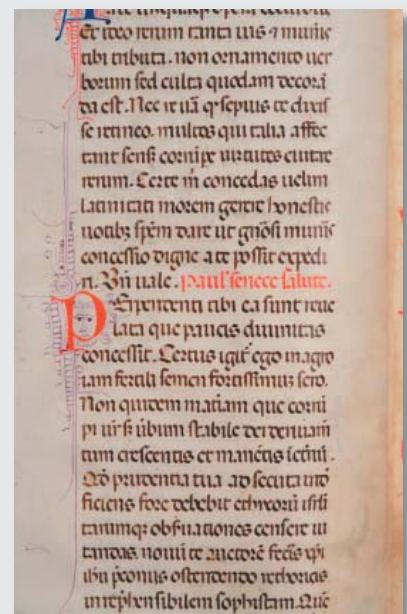 Et ideo rerum tanta uis ⁊ mun̄e
tibi tributa. non ornamento uer
borum sed cultu quodam decorā
da est. Nec sepius te dixis
se retineo. multos qui talia affec
tant sens corrūpe uirtutes euitare
rerum. Certe m̄ concedas uelim
latinitati morem gerere honestis
uocib; spēm dare ut gn̄osi mun̄is
concessio digne a te possit expedi
ri. Bn̄ uale. Paul' senece salute.
Perpendenti tibi ea sunt reue
lata que paucis diuinitas
concessit. Certus igit' ego in agro
iam fertili semen fortissimuz sero.
Non quidem mat'iam que corrū
pi uerbum stabile dei deriuam̄
tum crescentis et manētis īeternū.
prudentia tua assecuta
ficiens fore debebit
tarumq; obseruationes censere ui
tandas. nouū te auctorē fec̄is xp̄i
ih̄u p̄coniis ostendendo rethoricis
inrep̄hensibilem sophistam. Quē